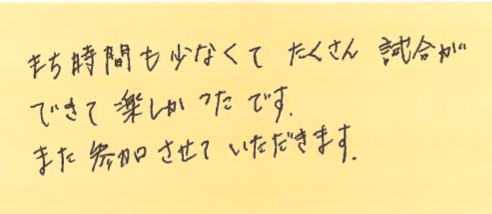 まち時間も少なくて たくさん 試合が
できて 楽しかったです.
また 参加 させて いただきます.